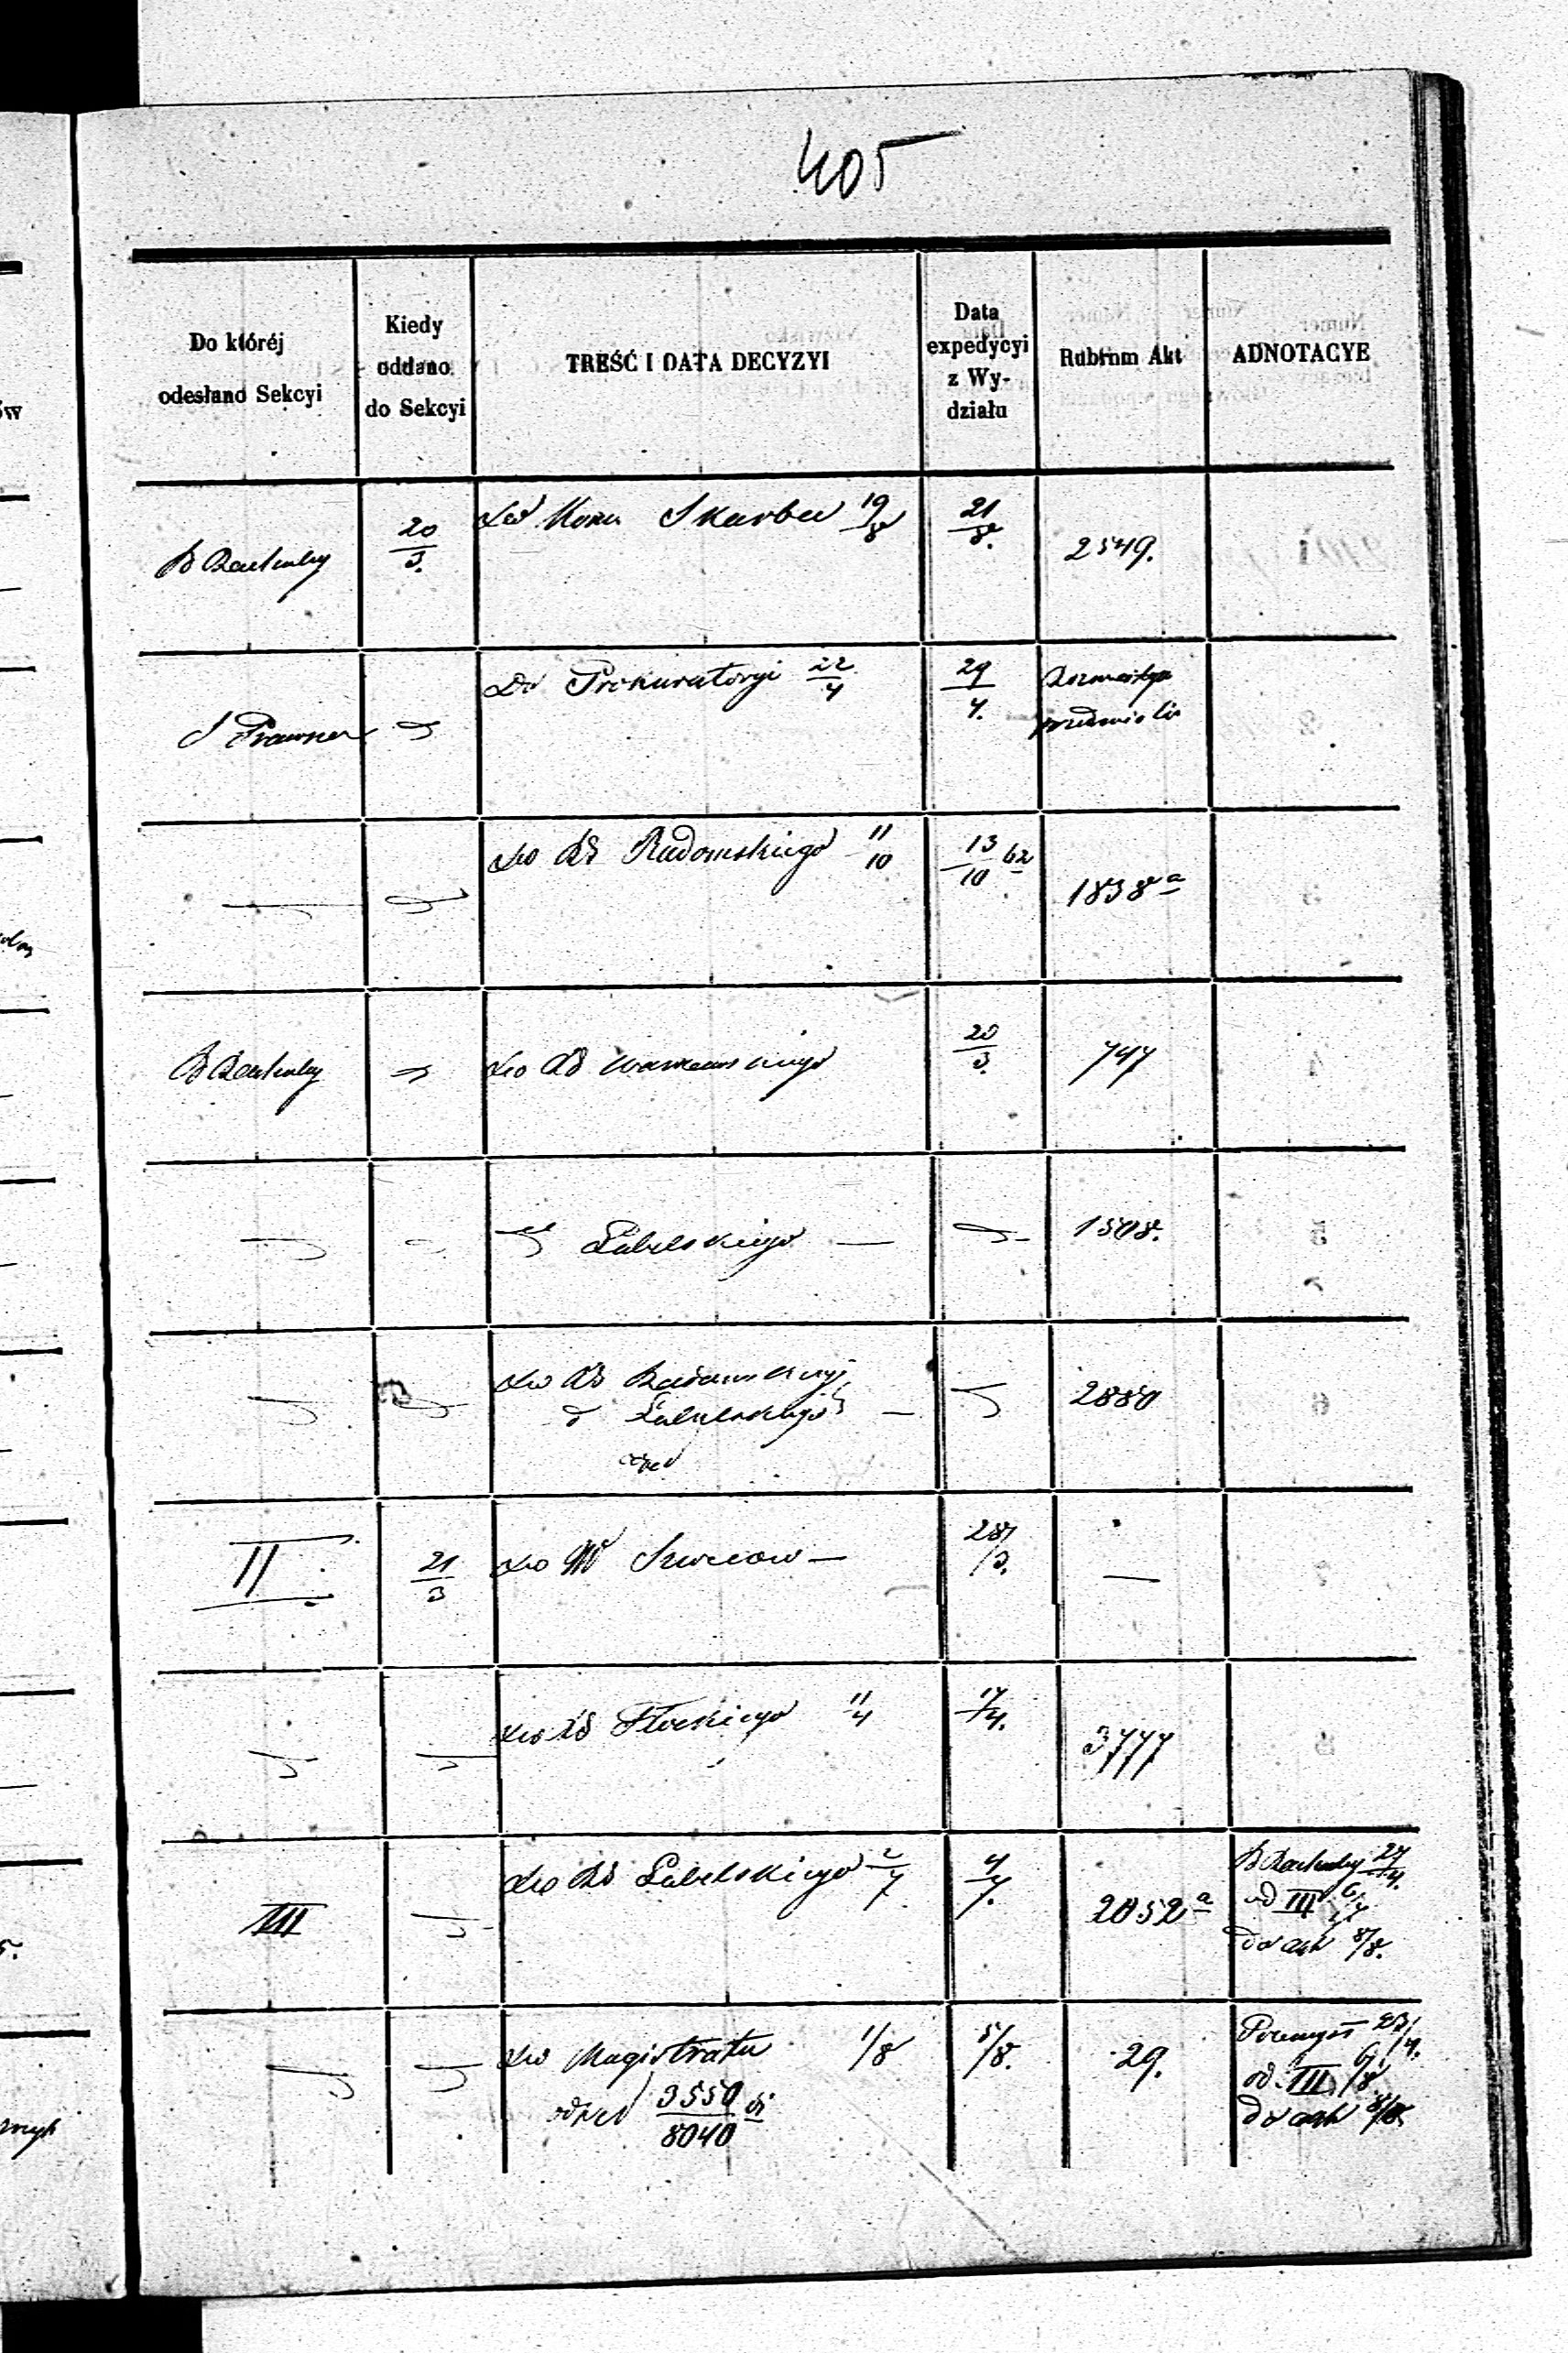 405
Do któréj
odesłano Sekcyi
Kiedy
oddano
do Sekcyi
TREŚĆ I DATA DECYZYI
Data
expedycyi
z Wy-
działu
Rubrum Akt
ADNOTACYE
B Rachuby
20/3.
Do Kom Skarbu 19/8
21/8.
2549.
S Prawna
Do Prokuratoryi 22/4
29/4.
Rozmaitye
przedmiota
Do RG Radomskiego 11/10
13/10 62
1838 a
B Rachuby
Do RG Warszawskiego
20/3.
747
Lubelskiego —
1508.
Do RG Radomskiego
d Lubelskiego —
2880
II.
21/3
Do Szwecow —
28/3.
—
Do RG Płockiego 11/4
17/4.
3777
III
Do RG Lubelskiego 2/7
4/7.
2052 a
B Rachuby 27/4.
od III
do akt 8/8.
Do Magistratu 1/8
odpow 3550/8040
5/8.
29.
Przemysł 23/4.
od III 6/8
do akt 8/8